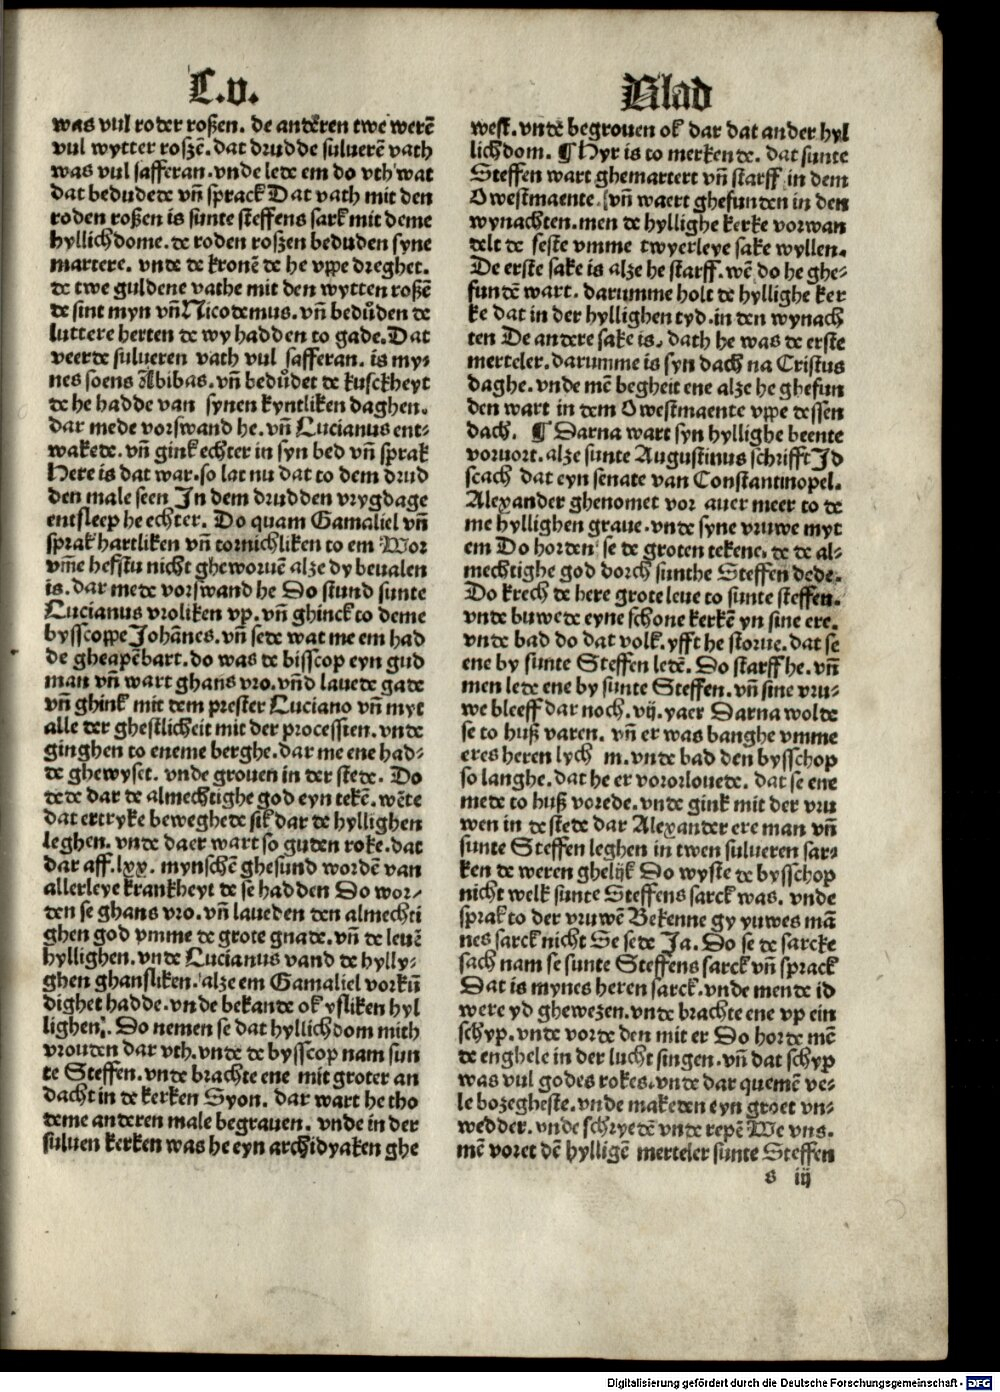 C.v.
Blad
was vul roder roßen. de anderen twe werē
vul wytter roszē. dat drudde suluerē vath
was vul safferan. vnde lede em do vth wat
dat bedudede vn̄ sprack Dat vath mit den
roden roßen is sunte steffens sark mit deme
hyllichdome. de roden roßen beduden syne
martere. vnde de kronē de he vppe dreghet.
de twe guldene vathe mit den wytten roßē
de sint myn vn̄ Nicodemus. vn̄ bedůden de
luttere herten de wy hadden to gade. Dat
veerde sulueren vath vul safferan. is my⸗
nes soens Abibas. vn̄ bedůdet de kusckheyt
de he hadde van synen kyntliken daghen.
dar mede vorswand he. vn̄ Lucianus ent⸗
wakede. vn̄ gink echter in syn bed vn̄ sprak
Here is dat war. so lat nu dat to dem drud
den male seen In dem drudden vrygdage
entsleep he echter. Do quam Gamaliel vn̄
sprak hartliken vn̄ tornichliken to em Wor
vm̄e hefstu nicht gheworuē alze dy beualen
is. dar mede vorswand he Do stund sunte
Lucianus vroliken vp. vn̄ ghinck to deme
bysscoppe Johānes. vn̄ sede wat me em had
de gheapēbart. do was de bisscop eyn gud
man vn̄ wart ghans vro. vn̄d lauede gade
vn̄ ghink mit dem prester Luciano vn̄ myt
alle der ghestlicheit mit der processien. vnde
ginghen to eneme berghe. dar me ene had⸗
de ghewyset. vnde grouen in der stede. Do
dede dar de almechtighe god eyn tekē. wēte
dat ertryke beweghede sik dar de hyllighen
leghen. vnde daer wart so guden roke. dat
dar aff. lxx. mynschē ghesund wordē van
allerleye krankheyt de se hadden Do wor⸗
den se ghans vro. vn̄ laueden den almechti
ghen god vmme de grote gnade. vn̄ de leuē
hyllighen. vnde Lucianus vand de hylly⸗
ghen ghansliken. alze em Gamaliel vorkū
dighet hadde. vnde bekande ok ysliken hyl
lighen. Do nemen se dat hyllichdom mith
vrouden dar vth. vnde de bysscop nam sun
te Steffen. vnde brachte ene mit groter an
dacht in de kerken Syon. dar wart he tho
deme anderen male begrauen. vnde in der
suluen kerken was he eyn archidyaken ghe
west. vnde begrouen ok dar dat ander hyl
lichdom. ¶ Hyr is to merkende. dat sunte
Steffen wart ghemartert vn̄ starff in dem
Owestmaente. vn̄ waert ghefunden in den
wynachten. men de hyllighe kerke vorwan
delt de feste vmme twyerleye sake wyllen.
De erste sake is alze he starff. wē do he ghe⸗
fundē wart. darumme holt de hyllighe ker
ke dat in der hyllighen tyd. in den wynach
ten De andere sake is. dath he was de erste
merteler. darumme is syn dach na Cristus
daghe. vnde mē begheit ene alze he ghefun
den wart in dem Owestmaente vppe dessen
dach. ¶ Darna wart syn hyllighe beente
voruort. alze sunte Augustinus schrifft Jd
scach dat eyn senate van Constantinopel.
Alexander ghenomet vor auer meer to de
me hyllighen graue. vnde syne vruwe myt
em Do horden se de groten tekene. de de al⸗
mechtighe god dorch sunthe Steffen dede.
Do krech de here grote leue to sunte steffen.
vnde buwede eyne schone kerkē yn sine ere.
vnde bad do dat volk. yfft he storue. dat se
ene by sunte Steffen ledē. Do starff he. vn̄
men lede ene by sunte Steffen. vn̄ sine vru⸗
we bleeff dar noch. vij. yaer Darna wolde
se to huß varen. vn̄ er was banghe vmme
eres heren lych m. vnde bad den bysschop
so langhe. dat he er vororlouede. dat se ene
mede to huß vorede. vnde gink mit der vru
wen in de stede dar Alexander ere man vn̄
sunte Steffen leghen in twen sulueren sar⸗
ken de weren ghelijk Do wyste de bysschop
nicht welk sunte Steffens sarck was. vnde
sprak to der vruwē Bekenne gy yuwes mā
nes sarck nicht Se sede Ja. Do se de sarcke
sach nam se sunte Steffens sarck vn̄ sprack
Dat is mynes heren sarck. vnde mende id
were yd ghewezen. vnde brachte ene vp ein
schyp. vnde vorde den mit er Do horde mē
de enghele in der lucht singen. vn̄ dat schyp
was vul godes rokes. vnde dar quemē ve⸗
le bozegheste. vnde makeden eyn groet vn⸗
wedder. vnde schryedē vnde repē We vns.
mē voret dē hylligē merteler sunte Steffen
s iij
Digitalisierung gefördert durch die Deutsche Forschungsgemeinschaft - DFG